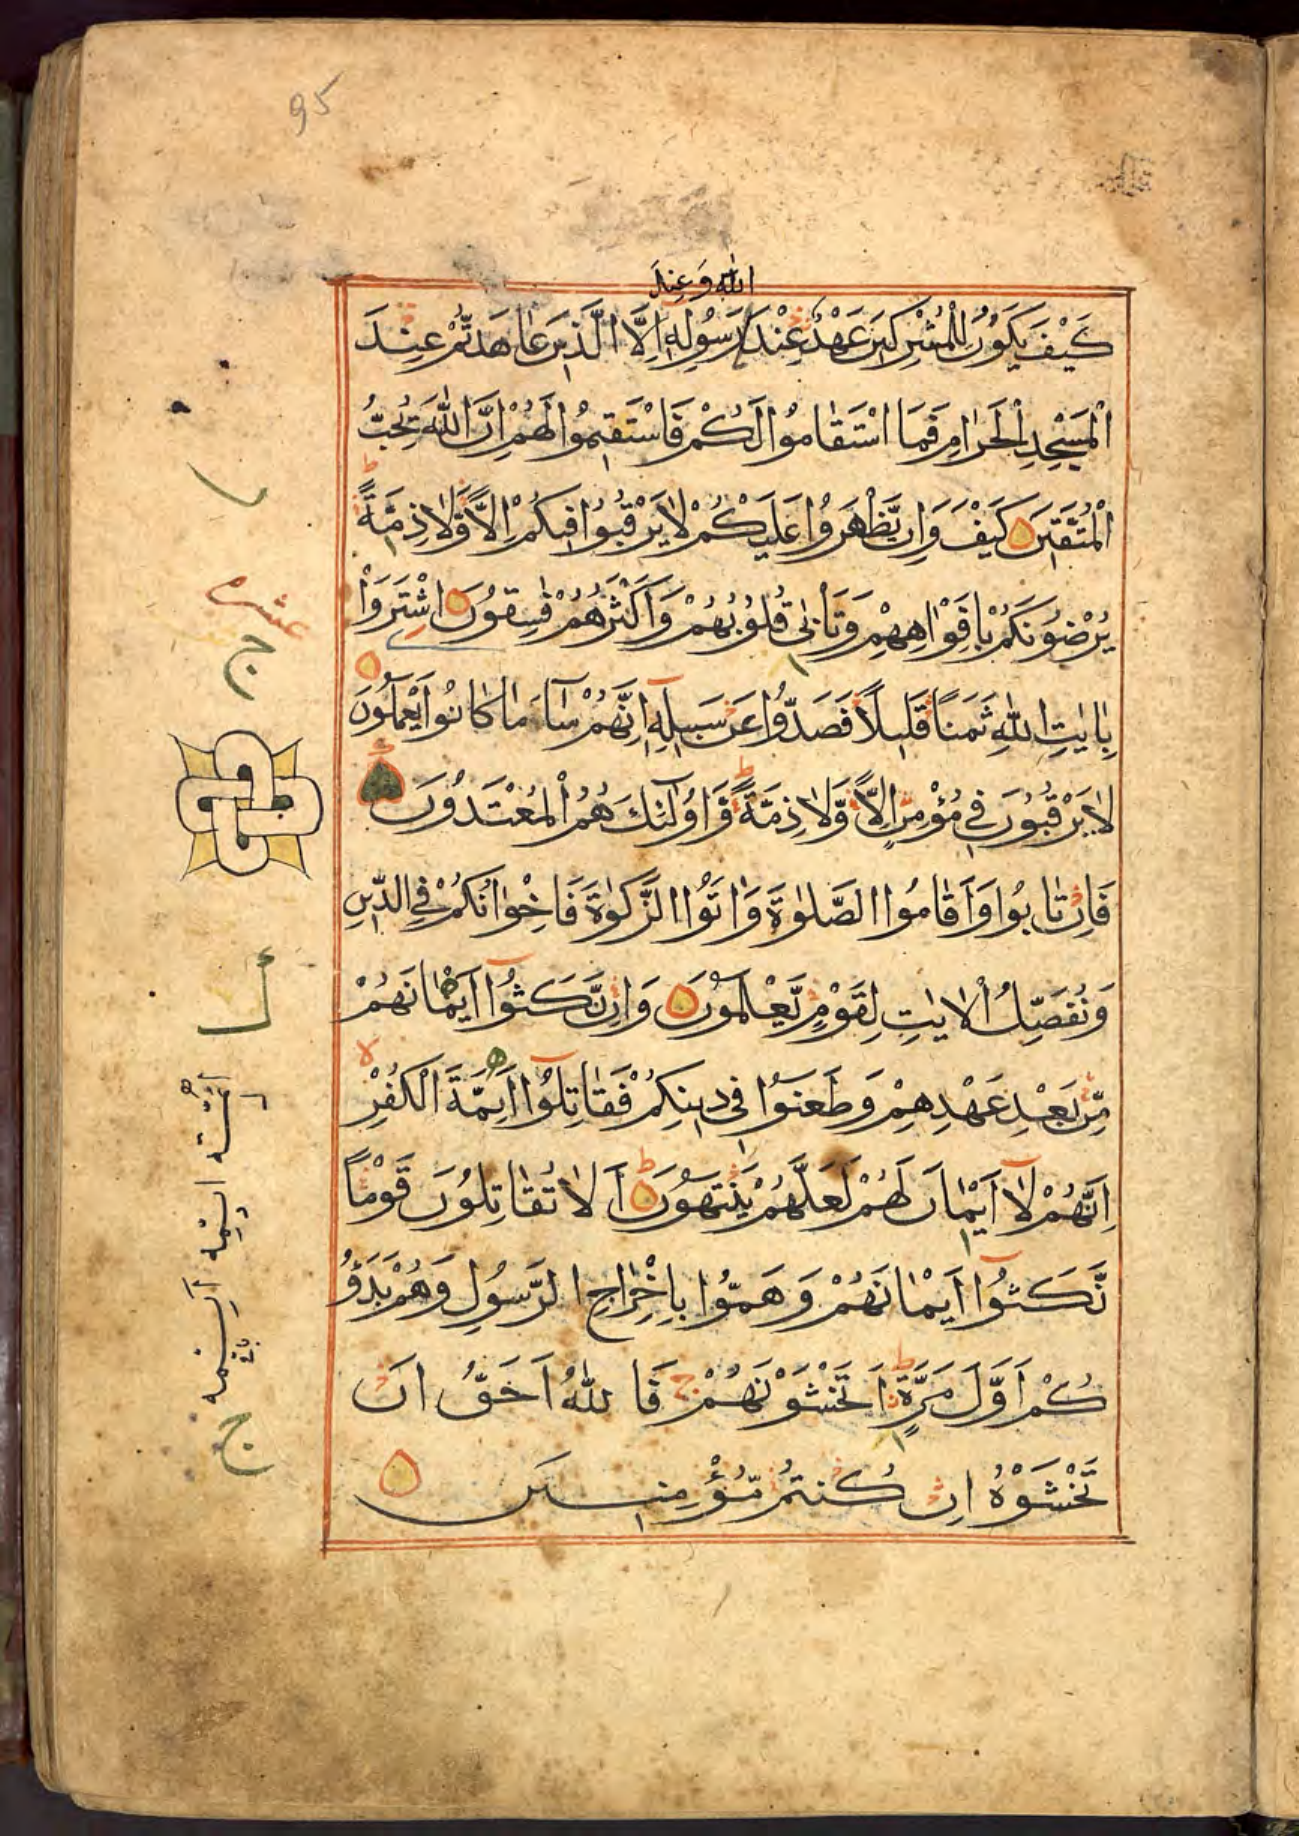 95
الله وعند
كَيْفَ يَكُونُ لِلْمُشْرِكِينَ عَهْدٌ عِنْدَ رَسُولِهِ اِلَّا الَّذِينَ عَاهَدْتُّمْ عِنْدَ
الْمَسْجِدِ الْحَرَامِ فَمَا اسْتَقَامُوا لَكُمْ فَاسْتَقِيمُوا لَهُمْ اِنَّ اللّٰهَ يُحِبُّ
الْمُتَّقِينَ كَيْفَ وَاِنْ يَّظْهَرُوا عَلَيْكُمْ لَا يَرْقُبُوا فِيكُمْ اِلًّا وَّلَا ذِمَّةً
يُرْضُونَكُمْ بِاَفْوَاهِهِمْ وَتَاْبٰى قُلُوبُهُمْ وَاَكْثَرُهُمْ فٰسِقُونَ اشْتَرَوْا
بِاٰيٰتِ اللّٰهِ ثَمَنًا قَلِيلًا فَصَدُّوا عَنْ سَبِيلِهِ اِنَّهُمْ سَآءَ مَا كَانُوا يَعْمَلُونَ
لَا يَرْقُبُونَ فِي مُؤْمِنٍ اِلًّا وَّلَا ذِمَّةً وَّاُولٰٓئِكَ هُمُ الْمُعْتَدُونَ
فَاِنْ تَابُوا وَاَقَامُوا الصَّلٰوةَ وَاٰتَوُا الزَّكٰوةَ فَاِخْوَانُكُمْ فِي الدِّينِ
وَنُفَصِّلُ الْاٰيٰتِ لِقَوْمٍ يَّعْلَمُونَ وَاِنْ نَّكَثُوٓا اَيْمَانَهُمْ
مِّنْ بَعْدِ عَهْدِهِمْ وَطَعَنُوا فِي دِينِكُمْ فَقَاتِلُوٓا اَئِمَّةَ الْكُفْرِ
اِنَّهُمْ لَآ اَيْمَانَ لَهُمْ لَعَلَّهُمْ يَنْتَهُونَ اَلَا تُقَاتِلُونَ قَوْمًا
نَّكَثُوٓا اَيْمَانَهُمْ وَهَمُّوا بِاِخْرَاجِ الرَّسُولِ وَهُمْ بَدَؤُ
كُمْ اَوَّلَ مَرَّةٍ اَتَخْشَوْنَهُمْ فَاللّٰهُ اَحَقُّ اَنْ
تَخْشَوْهُ اِنْ كُنْتُمْ مُّؤْمِنِينَ
عشر
ج
ج